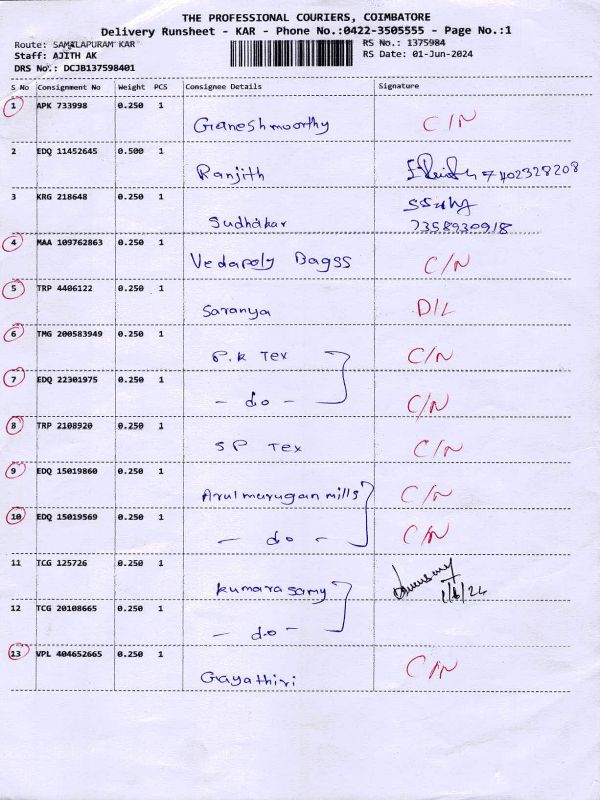 THE PROFESSIONAL COURIERS, COIMBATORE
Delivery Runsheet - KAR - Phone No.:0422-3505555 - Page No.:1
Route: SAMALAPURAM KAR RS No.: 1375984
Staff: AJITH AK RS Date: 01-Jun-2024
DRS No.: DCJB137598401
S No Consignment No Weight PCS Consignee Details Signature
1 APK 733998 0.250 1
Ganeshmoorthy C/N
2 EDQ 11452645 0.500 1
Ranjith 7402328208
3 KRG 218648 0.250 1
Sudhakar 7358930918
4 MAA 109762863 0.250 1
Vedapoly Bagss C/N
5 TRP 4406122 0.250 1
Saranya D/L
6 TMG 200583949 0.250 1
P.K Tex C/N
7 EDQ 22301975 0.250 1
- do - C/N
8 TRP 2108920 0.250 1
SP Tex C/N
9 EDQ 15019860 0.250 1
Arulmurugan mills C/N
10 EDQ 15019569 0.250 1
- do - C/N
11 TCG 125726 0.250 1
Kumarasamy 1/6/24
12 TCG 20108665 0.250 1
- do -
13 VPL 404652665 0.250 1
Gayathiri C/N